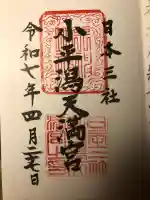 日本三社
小平潟天満宮
令和七年四月二七日